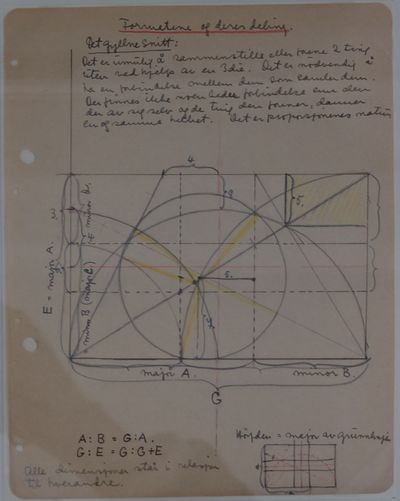 Formatene og deres deling.
Det gyllne snitt:
Det er umulig å sammenstille eller forene 2 ting
uten ved hjelp av en 3die. Det er nødvendig å
ha en forbindelse mellem dem som samler dem.
Der finnes ikke noen bedre forbindelse enn den
der av sig selv og de ting den forener, danner
en og samme helhet. Det er proporsjonenes natur
4
3
5.
5.
E = major A.
minor B (major C)
major A.
minor B.
G
A : B = G : A.
G : E = G : G + E
Alle dimensjoner står i relasjon
til hverandre.
Høyden = major av Grunnlinjen